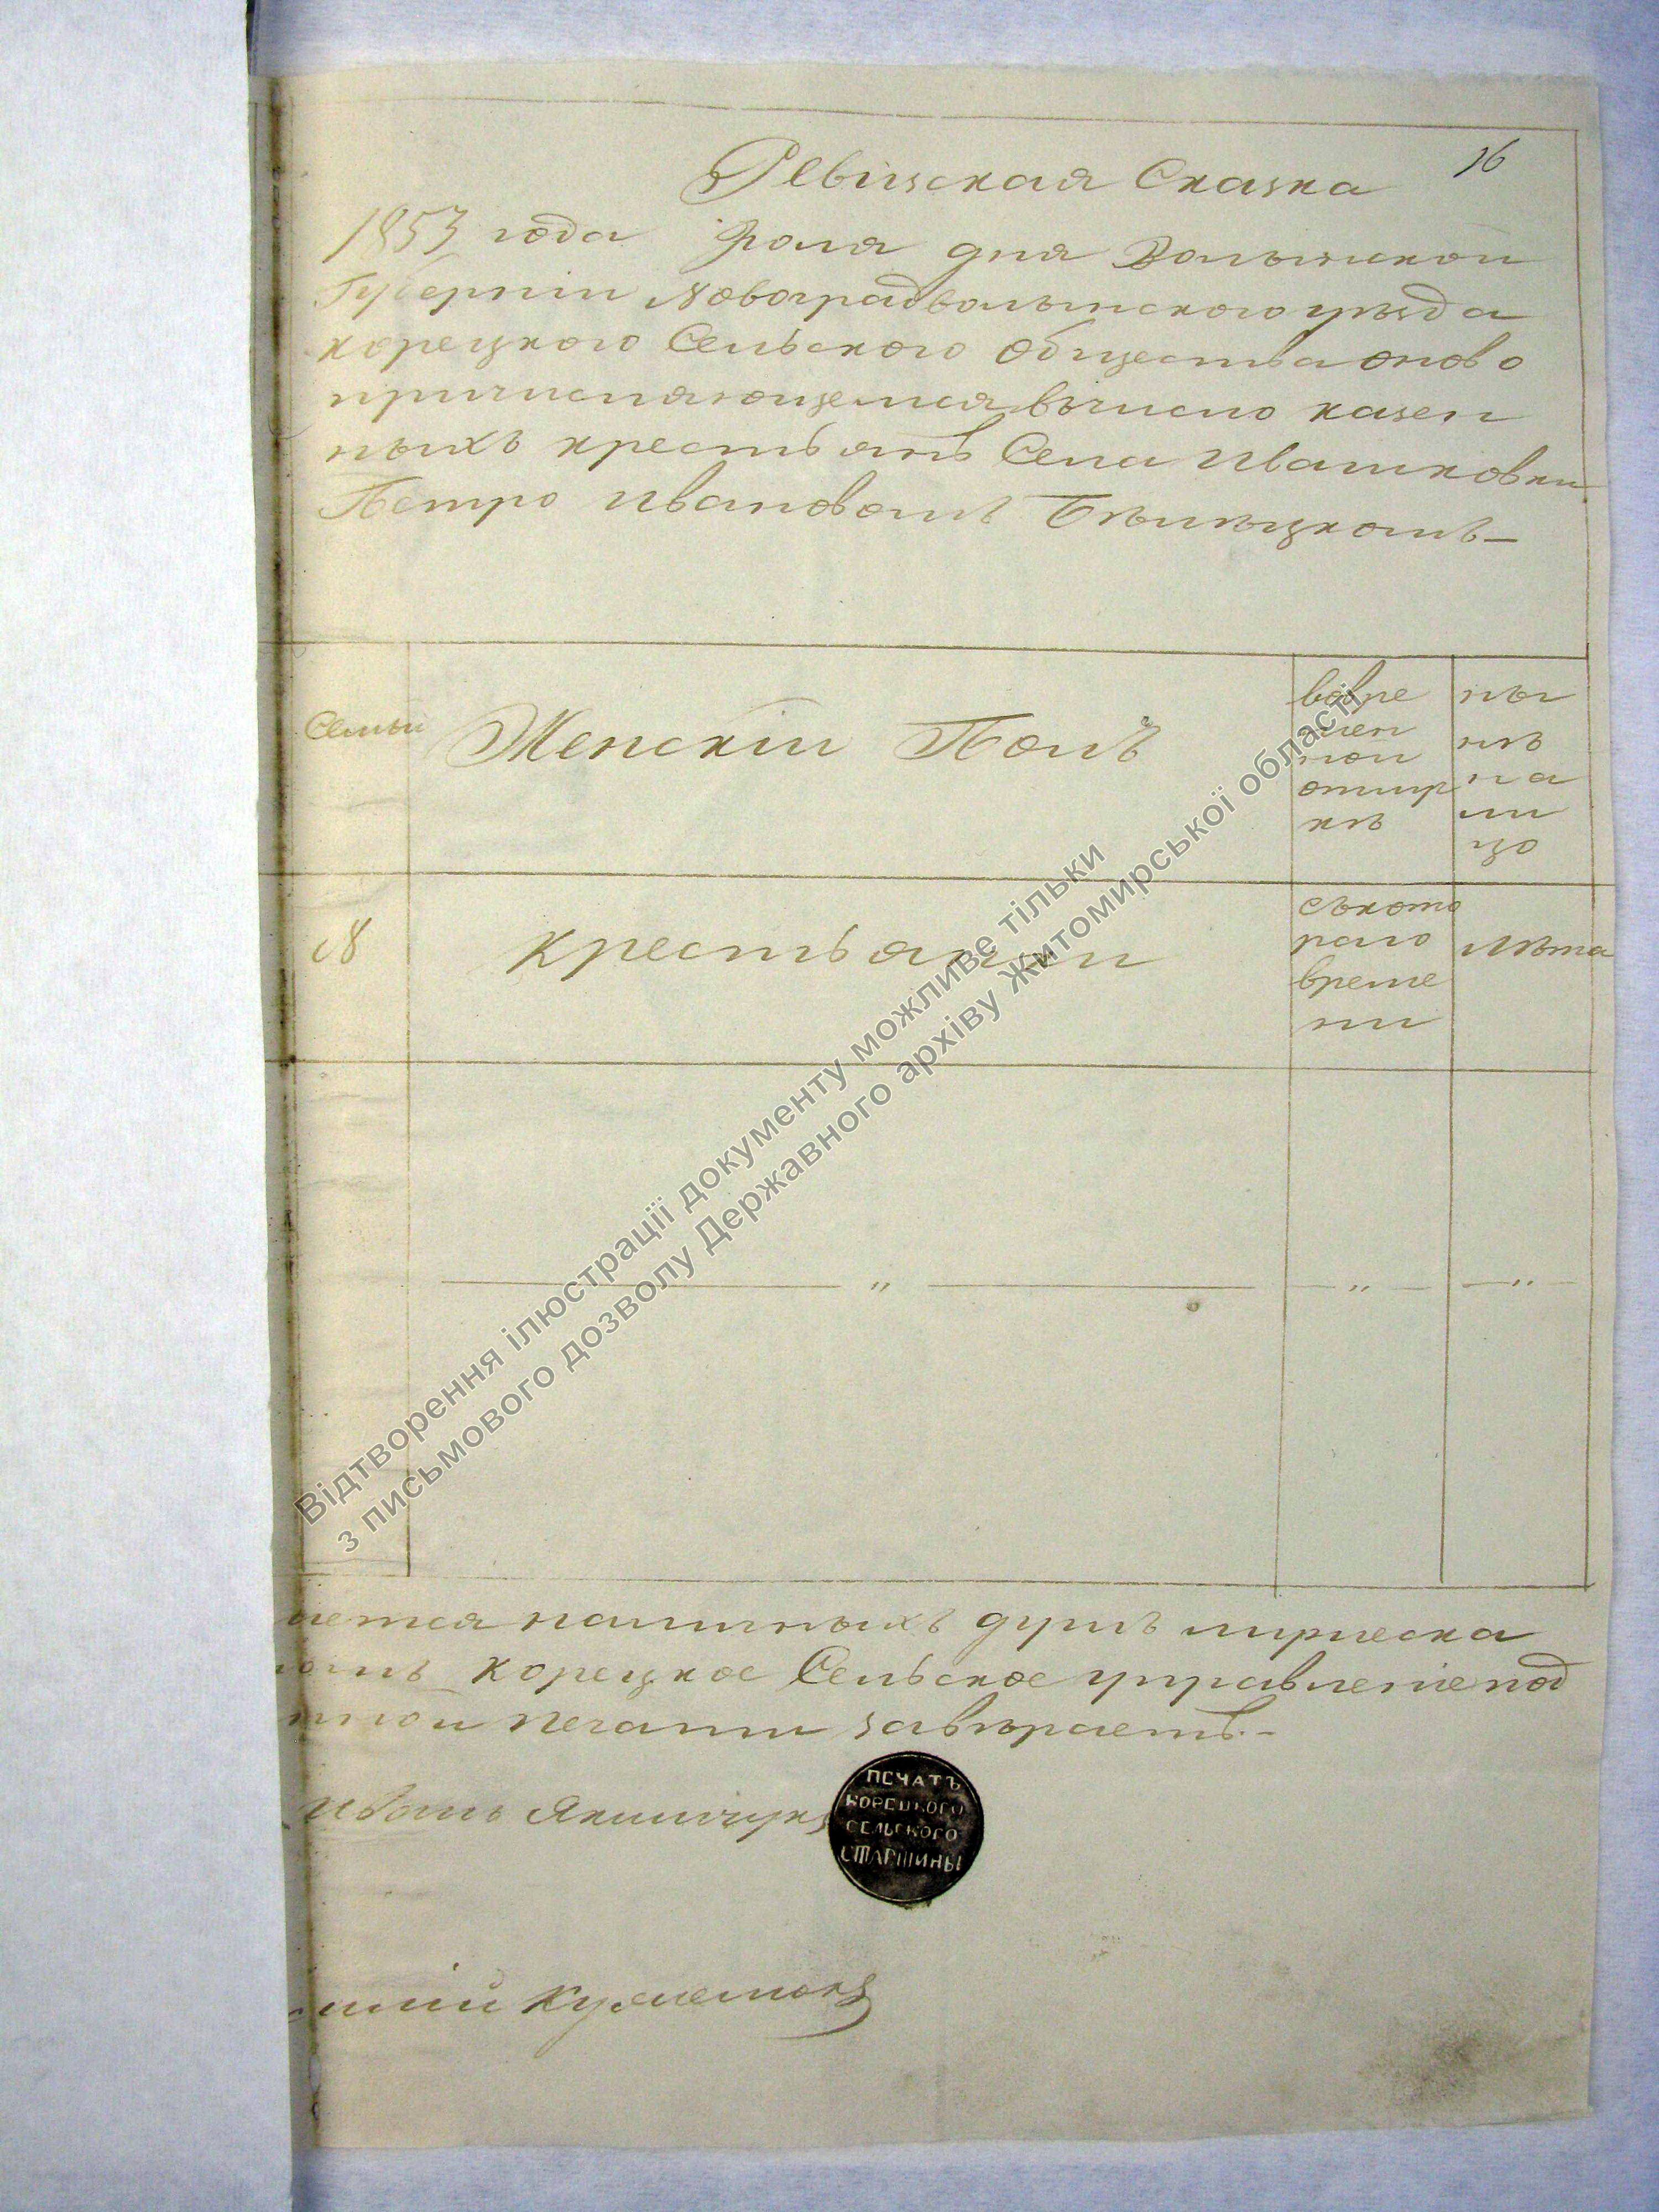 16
Ревизская Сказка
1853 года Юля дня Волынской
Губернии Новоградволынского уезда
корецкого Сельского Общества оново
причисляющемся вчисло казен
ныхъ крестьянъ Села Ивашковки
Петро Ивановомъ Бѣлецкомъ
Семьи
Женскій Полъ
вовре
мен
ной
отлуч
кѣ
ны
нѣ
на
ли
цо
№
крестьянки
съкото
раго
време
ни
Лѣта
ается наличныхъ душъ мужеска
омъ Корецкое Сельское управленіе под
ной печати завѣраетъ.
Иванъ Якимчукъ
ПЕЧАТЪ
КОРЕЦКОГО
СЕЛЬСКОГО
СТАРШИНЫ
Відтворення ілюстрації документу можливе тільки
з письмового дозволу Державного архіву Житомирської області